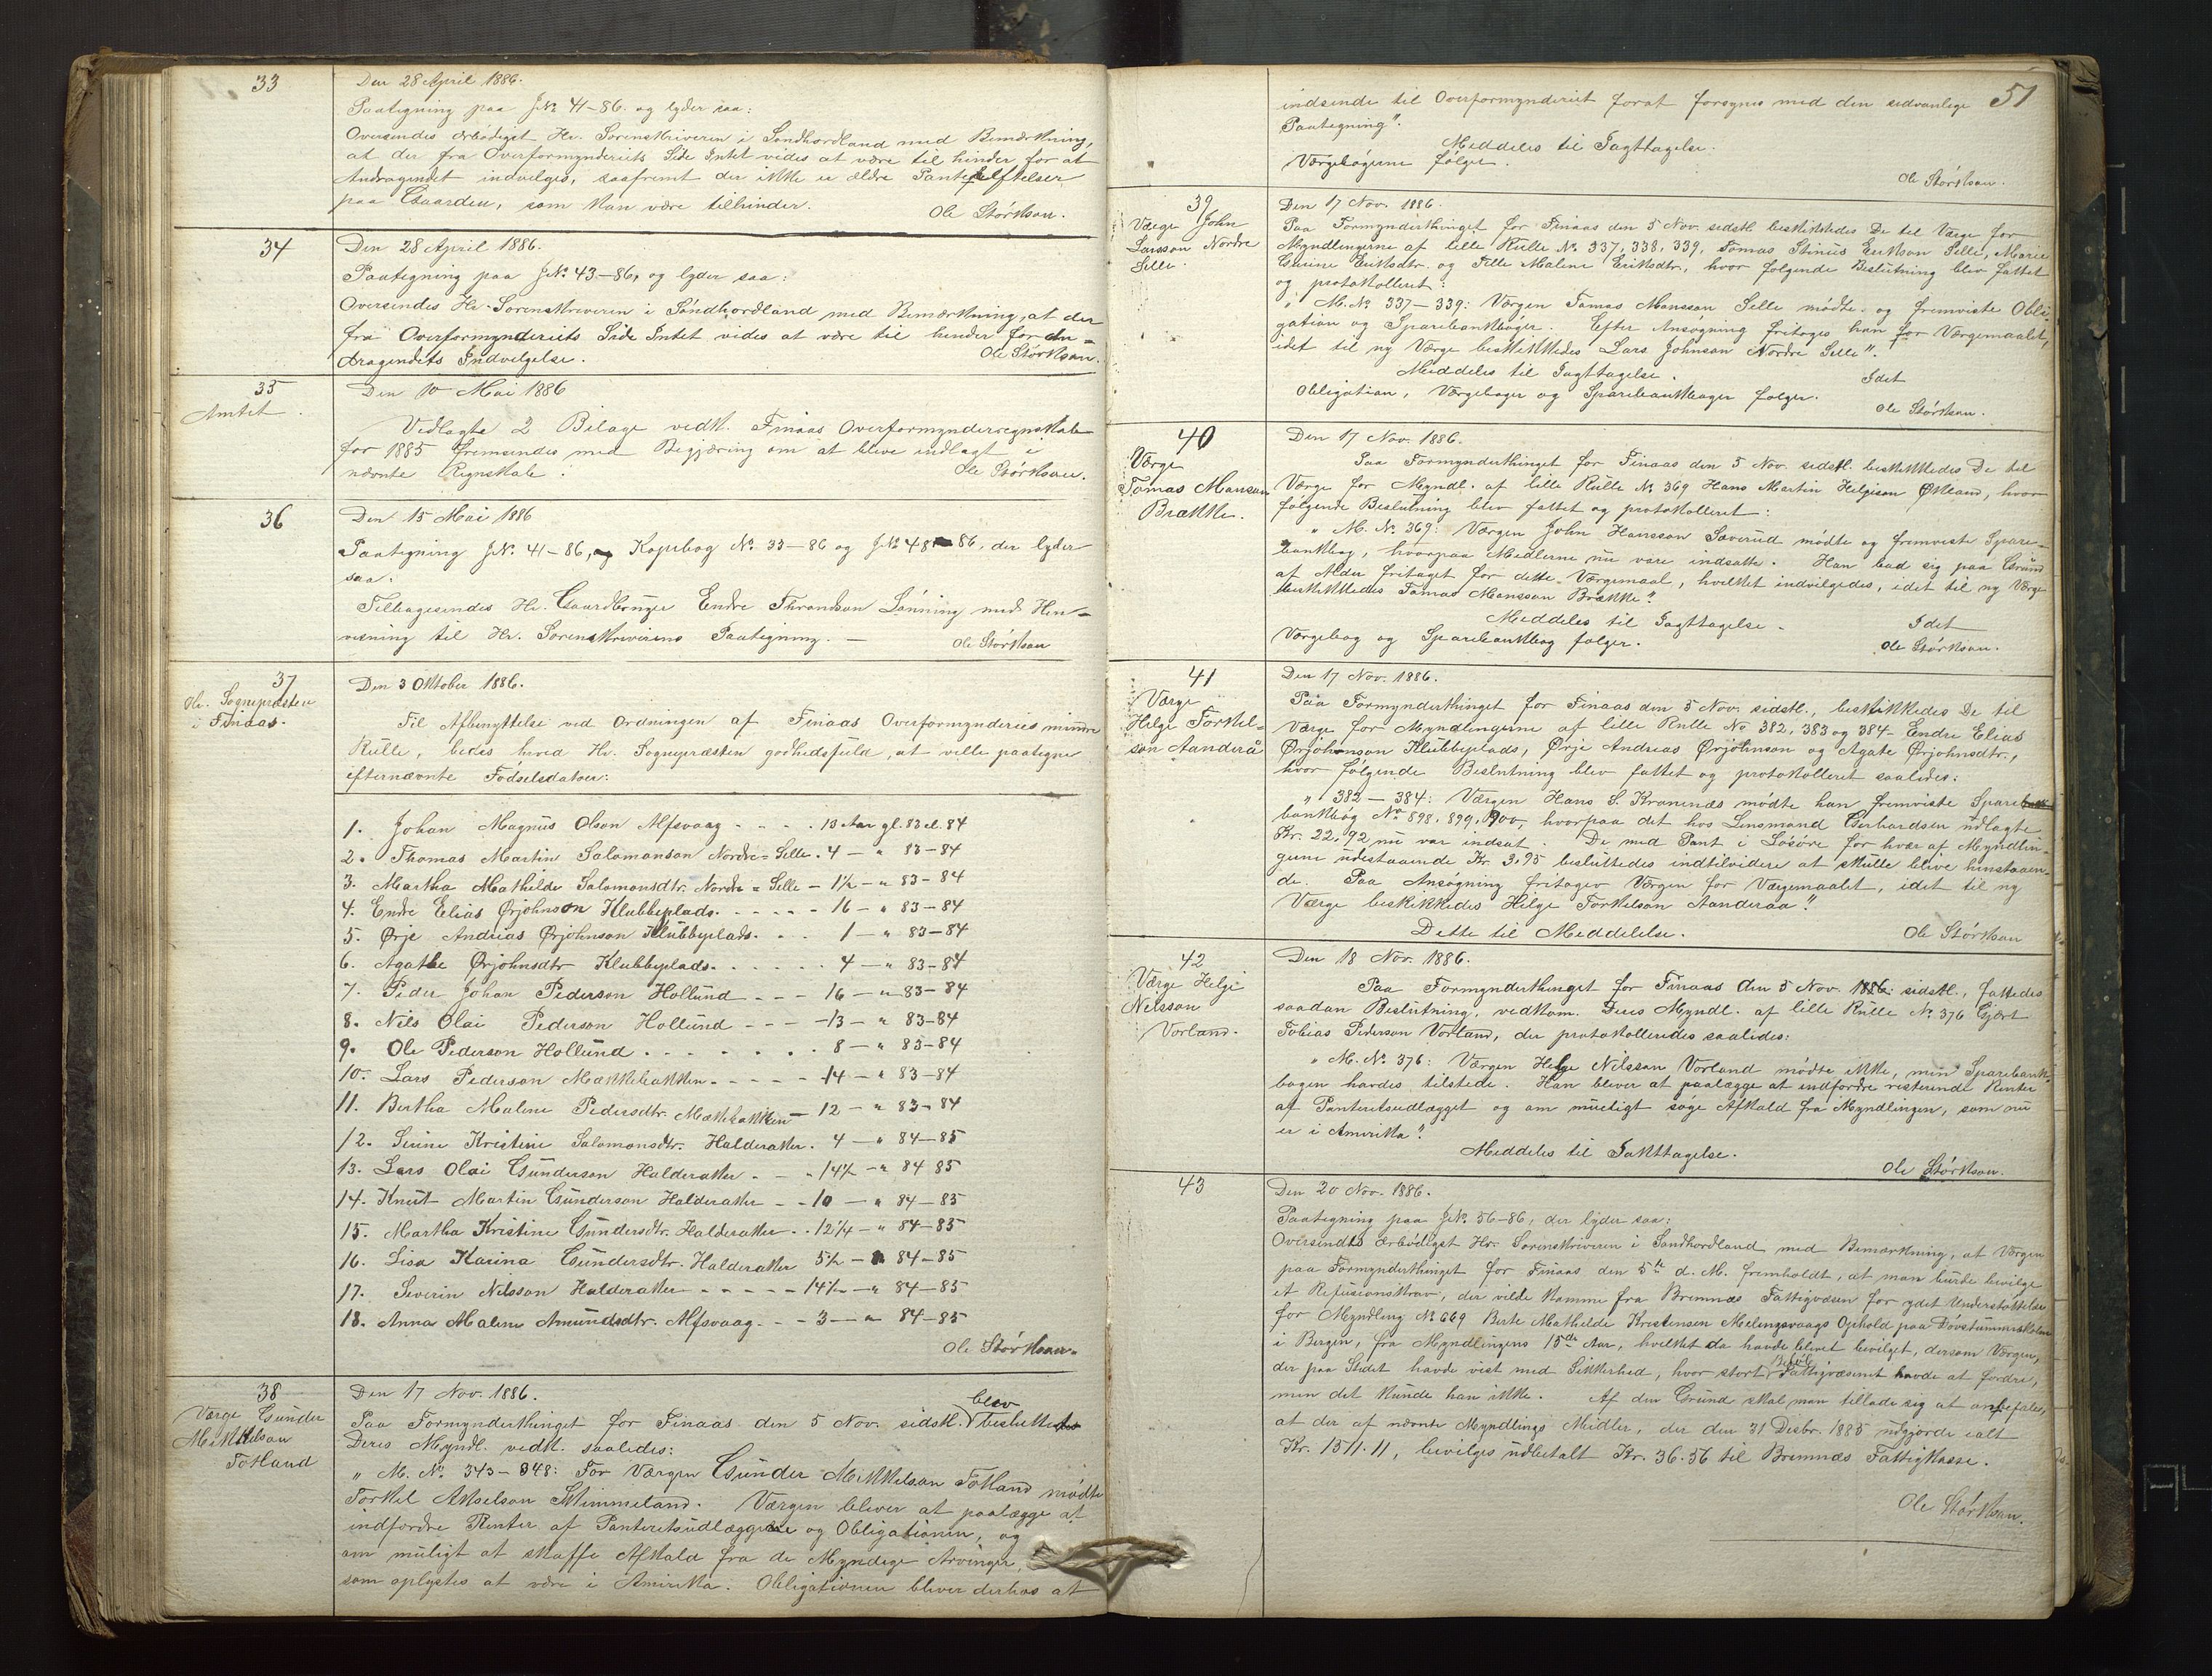 33
Den 28 April 1886.
Paategning paa J.No. 41-86. og lyder saa:
Oversendes ærbødigst Hr. Sorenskriveren i Søndhordland med Bemærkning,
at der fra Overformynderiets Side Intet vides at være til hinder for at
Andragendet indvilges, saafremt der ikke er ældre Panteheftelser
paa Gaarden, som kan være tilhinder.
Ole Størkson.
34
Den 28 April 1886.
Paategning paa J.No. 43-86, og lyder saa:
Oversendes Hr. Sorenskriveren i Søndhordland med Bemærkning, at der
fra Overformynderiets Side Intet vides at være til hinder for An=
dragendets Indvilgelse.
Ole Størkson.
35
Amtet.
Den 10 Mai 1886
Vedlagte 2 Bilage vedk. Finaas Overformynderregnskab
for 1885 fremsendes med Begjæring om at blive indlagt i
nævnte Regnskab.
Ole Størkson.
36
Den 15 Mai 1886
Paategning J.No. 41-86, Kopibog No. 33-86 og J.No. 48-86, der lyder
saa:
Tilbagesendes Hr. Gaardbruger Endre Throndson Lønning med Hen=
visning til Hr. Sorenskriverens Paategning. —
Ole Størkson
37
Hr. Sognepræsten
i Finaas.
Den 3 Oktober 1886.
Til Afbenyttelse ved Ordningen af Finaas Overformynderies mindre
Rulle, bedes herved Hr. Sognepræsten godhedsfuld, at ville paategne
efternævnte Fødselsdatoer:
1. Johan Magnus Olson Alfsvaag - - - . 13 Aar gl. 83 el. 84
2. Thomas Martin Salomonson Nordre=Selle . 4 — " 83-84
3. Martha Mathilde Salomonsdtr. Nordre=Selle — 1½ — " 83-84
4. Endre Elias Ørjohnson Klubbeplads. - - - - - 16 — " 83-84
5. Ørje Andreas Ørjohnson Klubbeplads. - . . 1 — " 83-84
6. Agathe Ørjohnsdtr Klubbeplads. . . . . . . 4 — " 83-84
7. Peder Johan Pederson Hollund - - - 16 — " 83-84
8. Nils Olai Pederson Hollund - - - -13 — " 83-84
9. Ole Pederson Hollund . . . . . . . 8 — " 83-84
10. Lars Pederson Mækkebakken. - - - - 14 — " 83-84
11. Bertha Maline Pedersdtr. Mækkebakken — 12 — " 83-84
12. Serine Kristine Salomonsdtr. Halderaker. 4 — " 84-85
13. Lars Olai Gunderson Halderaker - — " 14½ — " 84 85
14. Knut Martin Gunderson Halderaker - - 10 — " 84-85
15. Martha Kristine Gundersdtr. Halderaker . . 12¼ — " 84-85
16. Lisa Karina Gundersdtr. Halderaker 5½ — " 84-85
17. Severin Nilsson Halderaker - - - - - 14½ — " 84-85
18. Anna Maline Amundsdtr. Alfsvaag. - - 3 — " 84-85
Ole Størkson.
38
Værge Gunder
Mikkelson
Totland
Den 17 Nov. 1886.
blev
Paa Formynderthinget for Finaas den 5 Nov. sidstl. besluttet
Deres Myndl. vedk. saaledes:
" M. No. 343-348: For Værgen Gunder Mikkelson Totland mødte
Torkel Akselson Skimmeland. Værgen bliver at paalægge at
indfordre Renter af Panteretsudlæggene og Obligationen, og
om muligt at skaffe Afkald fra de Myndige Arvinger,
som oplystes at være i Amerika. Obligationen bliver derhos at
51
indsende til Overformynderiet forat forsynes med den sedvanlige
Paategning".
Meddeles til Iagttagelse.
Værgebøgerne følger.
Ole Størkson.
39
Værge John
Larsson Nordre
Selle.
Den 17 Nov. 1886.
Paa Formynderthinget for Finaas den 5 Nov. sidstl. beskikkedes De til Værge for
Myndlingerne af lille Rulle No. 337, 338, 339, Tomas Stinius Erikson Selle, Marie
Gurine Eriksdtr. og Tille Maline Eriksdtr., hvor følgende Beslutning blev fattet
og protokolleret:
" M. No. 337-339: Værgen Tomas Monsson Selle mødte og fremviste Obli=
gation og Sparebankbøger. Efter Ansøgning fritoges han for Værgemaalet,
idet til ny Værge beskikkedes Lars Johnson Nordre Selle".
Meddeles til Iagttagelse. Idet
Obligation, Værgebøger og Sparebankbøger følger.
Ole Størkson.
40
Værge
Tomas Monsson
Brække.
Den 17 Nov. 1886.
Paa Formynderthinget for Finaas den 5 Nov. sidstl. beskikkedes De til
Værge for Myndl. af lille Rulle No. 369 Hans Martin Helgeson Økland, hvor
følgende Beslutning blev fattet og protokolleret:
" M. No. 369: Værgen John Hansson Sæverud mødte og fremviste Spare=
bankbog, hvorpaa Midlerne nu vare indsatte. Han bad sig paa Grund
af Alder fritaget for dette Værgemaal, hvilket indvilgedes, idet til ny Værge
beskikkedes Tomas Monsson Brække".
Meddeles til Iagttagelse. Idet
Værgebog og Sparebankbog følger.
Ole Størkson.
41
Værge
Helge Torkel=
son Aanderå
Den 17 Nov. 1886.
Paa Formynderthinget for Finaas den 5 Nov. sidstl., beskikkedes De til
Værge for Myndlingerne af lille Rulle No 382, 383 og 384 Endre Elias
Ørjohnson Klubbeplads, Ørje Andreas Ørjohnson og Agate Ørjohnsdtr.,
hvor følgende Beslutning blev fattet og protokolleret saaledes:
" 382-384: Værgen Hans S. Kranenæs mødte han fremviste Spare
bankbog No 898, 899, 900, hvorpaa det hos Lensmand Gerhardsen udlagte
Kr. 22,92 nu var indsat. De med Pant i Løsøre for hver af Myndlin=
gerne udestaaende Kr. 3,95 besluttedes indtilvidere at skulle blive henstaaen=
de. Paa Ansøgning fritages Værgen for Værgemaalet, idet til ny
Værge beskikkedes Helge Torkelson Aanderaa".
Dette til Meddelelse.
Ole Størkson
42
Værge Helge
Nilsson
Vorland.
Den 18 Nov. 1886.
Paa Formynderthinget for Finaas den 5 Nov. 1886 sidstl., fattedes
saadan Beslutning, vedkom. Deres Myndl. af lille Rulle No. 376 Gjert
Tobias Pederson Vorland, der protokolleredes saaledes:
" M. No. 376: Værgen Helge Nilsson Vorland mødte ikke, men Sparebank=
bogen havdes tilstede. Han bliver at paalægge at indfordre resterende Renter
af Panteretsudlægget og om mueligt søge Afkald fra Myndlingen, som nu
er i Amerika".
Meddeles til Iakttagelse.
Ole Størkson.
43
Den 20 Nov. 1886.
Paategning paa J.No. 56-86, der lyder saa:
Oversendes ærbødigst Hr. Sorenskriveren i Søndhordland med Bemærkning, at Værgen
paa Formynderthinget for Finaas den 5te d. M. fremholdt, at man burde bevilge
et Refusionskrav, der vilde komme fra Bremnæs Fattigvæsen for ydet Understøttelse
for Myndling No 669 Berte Mathilde Kristensen Melengsvaags Ophold paa Døvstummeskolen
i Bergen, fra Myndlingens 15de Aar, hvilket da havde blevet bevilget, dersom Værgen,
Beløb
der paa Stedet havde vist med Sikkerhed, hvor stort Fattigvæsenet havde at fordre,
men det kunde han ikke. Af den Grund skal man tillade sig at anbefale,
at der af nævnte Myndlings Midler, der den 31 Desbr. 1885 udgjorde ialt
Kr. 1511.11, bevilges udbetalt Kr. 36.56 til Bremnæs Fattigkasse.
Ole Størkson.